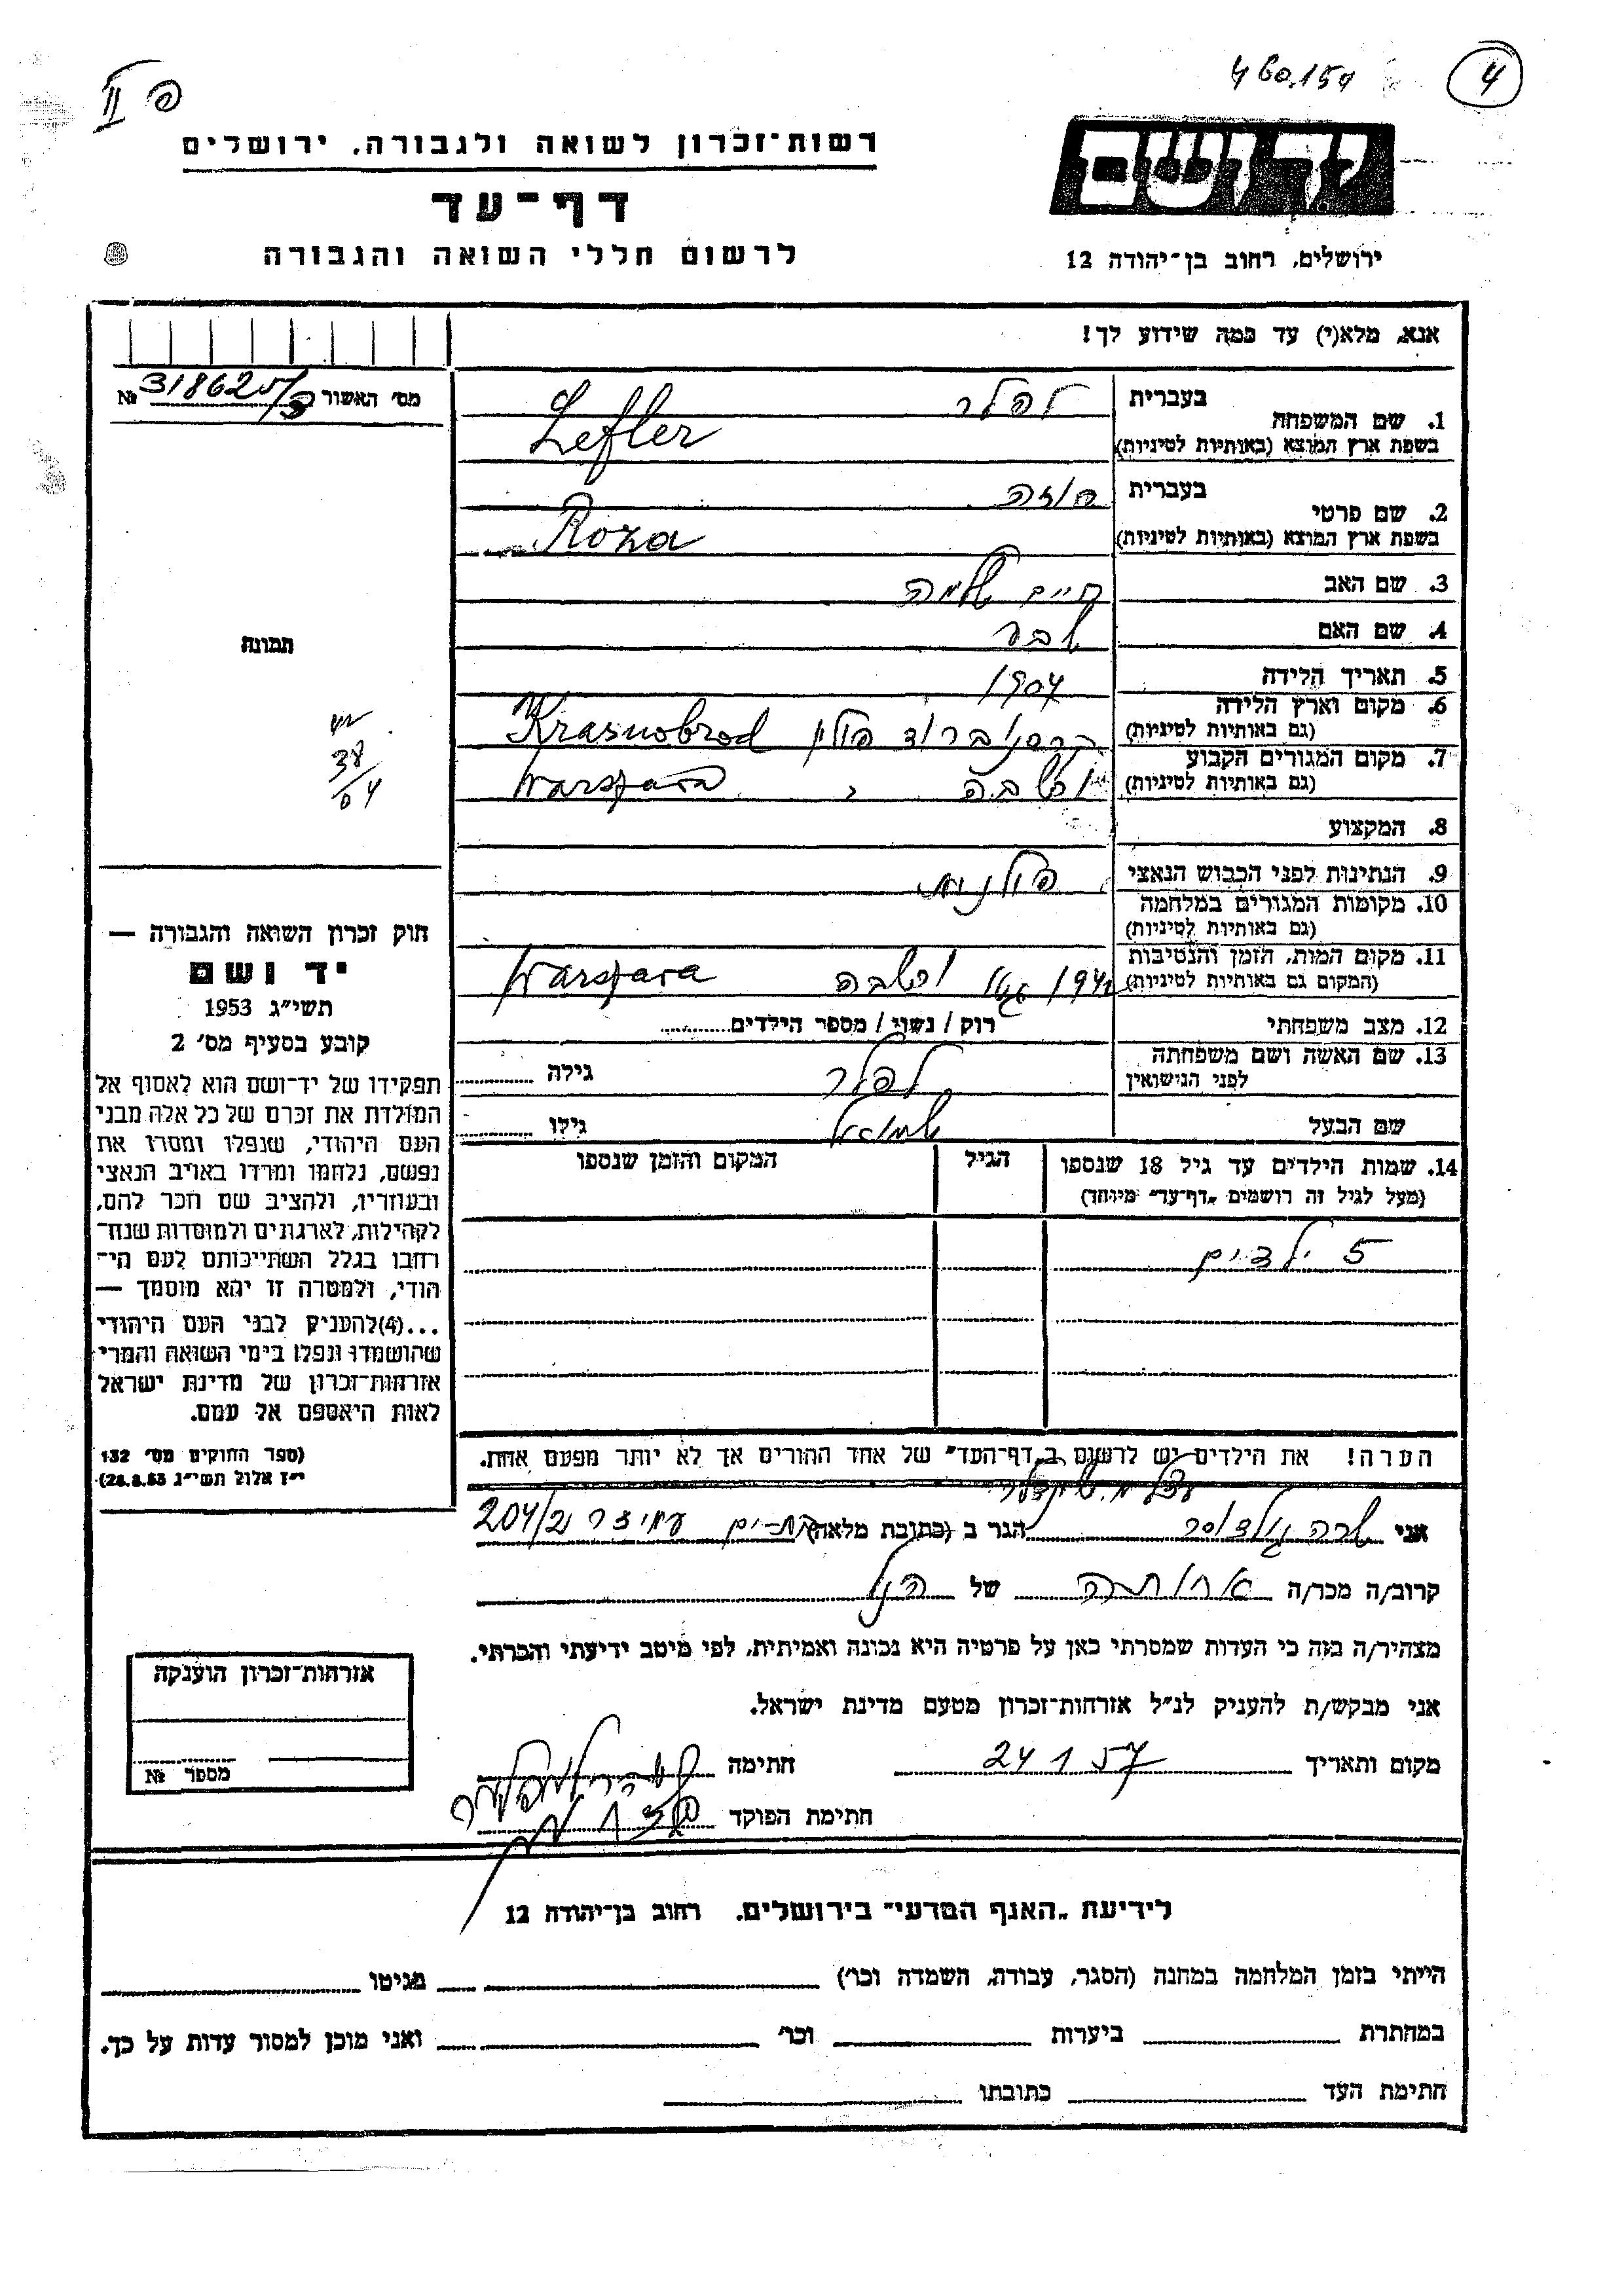 460.154
4
פ II
יד ושם
רשות־זכרון לשואה ולגבורה, ירושלים
דף־עד
לרשום חללי השואה והגבורה
ירושלים, רחוב בן־יהודה 12
אנא, מלא(י) עד כמה שידוע לך!
מס׳ האשור № 318625/
1. שם המשפחה בעברית לפלר
בשפת ארץ המוצא (באותיות לטיניות) Lefler
2. שם פרטי בעברית רוזה
בשפת ארץ המוצא (באותיות לטיניות) Roza
3. שם האב חיים שלמה
4. שם האם שבע
5. תאריך הלידה 1904
6. מקום וארץ הלידה
(גם באותיות לטיניות) קרסנוברוד פולין Krasnobrod
7. מקום המגורים הקבוע
(גם באותיות לטיניות) ורשבה, Warszawa
8. המקצוע
9. הנתינות לפני הכבוש הנאצי פולנית
10. מקומות המגורים במלחמה
(גם באותיות לטיניות)
11. מקום המות, הזמן והנסיבות
(המקום גם באותיות לטיניות) 1942 גטו ורשבה Warszawa
12. מצב משפחתי רוק / נשוי / מספר הילדים
13. שם האשה ושם משפחתה
לפני הנישואין לפלר גילה
שם הבעל שמואל גילו
14. שמות הילדים עד גיל 18 שנספו
(מעל לגיל זה רושמים „דף־עד״ מיוחד)
הגיל
המקום והזמן שנספו
5 ילדים
הערה! את הילדים יש לרשום ב„דף־העד״ של אחד ההורים אך לא יותר מפעם אחת.
תמונה
38
04
חוק זכרון השואה והגבורה —
יד ושם
תשי״ג 1953
קובע בסעיף מס׳ 2
תפקידו של יד־ושם הוא לאסוף אל
המולדת את זכרם של כל אלה מבני
העם היהודי, שנפלו ומסרו את
נפשם, נלחמו ומרדו באויב הנאצי
ובעוזריו, ולהציב שם וזכר להם,
לקהילות, לארגונים ולמוסדות שנח־
רבו בגלל השתייכותם לעם הי־
הודי, ולמטרה זו יהא מוסמך —
...(4) להעניק לבני העם היהודי
שהושמדו ונפלו בימי השואה והמרי
אזרחות־זכרון של מדינת ישראל
לאות היאספם אל עמם.
(ספר החוקים מס׳ 132
י״ז אלול תשי״ג 28.8.53)
אצל
אני שרה הגר ב (כתובת מלאה) בת־ים עמידר 204/2
קרוב/ה מכר/ה אחותה של הנ״ל
מצהיר/ה בזה כי העדות שמסרתי כאן על פרטיה היא נכונה ואמיתית, לפי מיטב ידיעתי והכרתי.
אני מבקש/ת להעניק לנ״ל אזרחות־זכרון מטעם מדינת ישראל.
מקום ותאריך 24 1 57 חתימה
חתימת הפוקד
אזרחות־זכרון הוענקה
מספר №
לידיעת „האגף המדעי״ בירושלים, רחוב בן־יהודה 12
הייתי בזמן המלחמה במחנה (הסגר, עבודה, השמדה וכו׳) בגיטו
במחתרת ביערות וכו׳ ואני מוכן למסור עדות על כך.
חתימת העד כתובתו